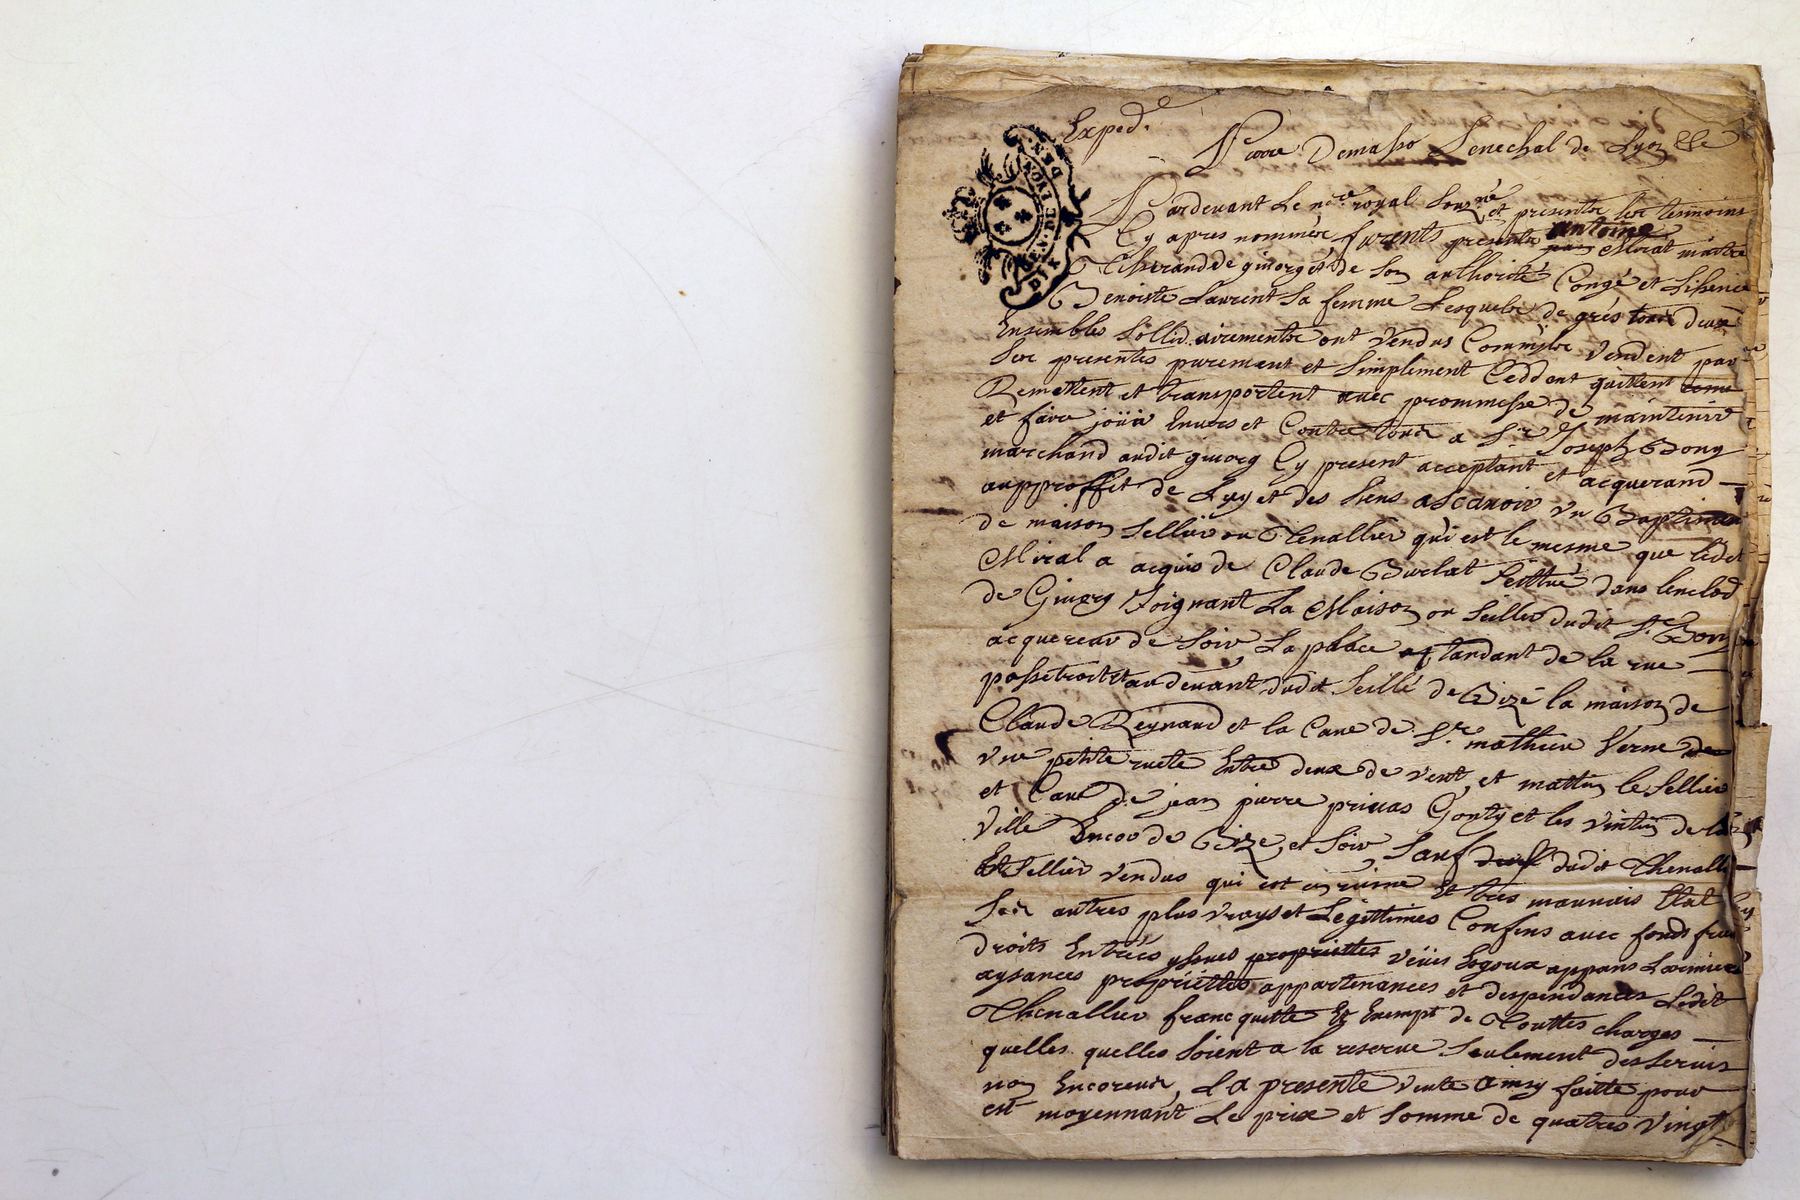 Exped.
Pierre Demasso Senechal de Lyon &c
GEN. DE LYON
DIX DEN.
Pardevant Le nre royal Sousné et presents les temoins
Cy apres nommés furents presents antoine Miral maitre
Thisrand de givorgs de son authorité Congé et Lisence
Benoiste Laurent sa femme Lesquels de grés tous deux
Ensembles Sollidairements ont Vendus Comm'ils Vendent par
Ses presentes purement et Simplement Ceddent quittent
Remettent et transportent avec prommesse de maintenir
et faire joüir Envers et Contre tous a Sr Joseph Bony
marchand audit givorg Cy present acceptant et acquerand
aupproffit de Luy et des Siens ascavoir un Baptimen
de maison Sellier ou Thenallier qui est le mesme que ledit
Miral a acquis de Claude Burlat scittué dans lenclos
de Givorg Joignant La Maison ou Seillier dudit Sr Bony
acquereur de Soir La place tandant de la rue
au devant dudit Seillé de Bize la maison de
Claude Reynaud et la Cave de Sr mathieu Verne
une petite ruete Entre deux de vent, et mattin le Sellier
et Cave de jean pierre privas Gonty et les vintin de la
Ville Encor de Bize, et Soir, Sauf dudit Thenallier
Et Sellier vendus qui est en ruine Et tres mauvais Etat
Ses autres plus vrays et Legittimes Confins avec fonds
droits Entrées yssues proprietes veües Egoux appans Larmiers
aysances proprietes appartenances et despendances Ledit
Thenallier franc quitte Et Exempt de Touttes charges
quelles quelles Soient a la reserve Seulement des Servis
non Encoreus, La presente vente ainsy faitte pour
est moyennant Le prix et Somme de quatres vingt